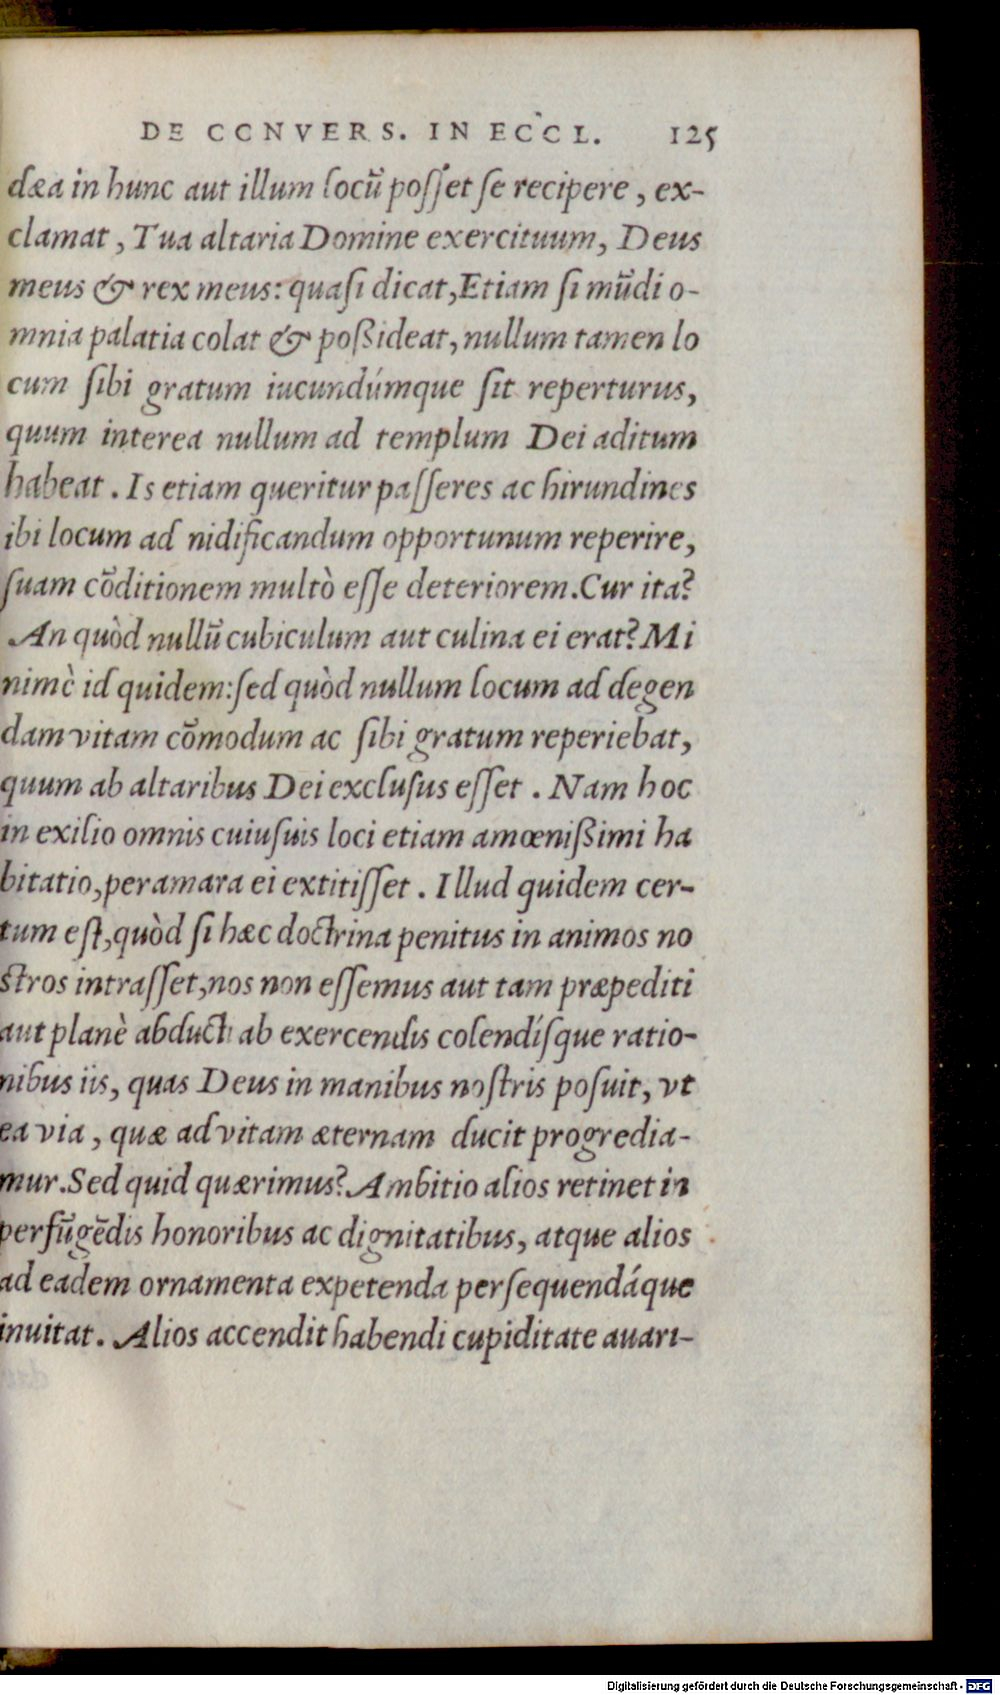 DE CCNVERS. IN ECCL. 125
dæa in hunc aut illum locū posset se recipere, ex-
clamat, Tua altaria Domine exercituum, Deus
meus & rex meus: quasi dicat, Etiam si mūdi o-
mnia palatia colat & poßideat, nullum tamen lo
cum sibi gratum iucundúmque sit reperturus,
quum interea nullum ad templum Dei aditum
habeat. Is etiam queritur passeres ac hirundines
ibi locum ad nidificandum opportunum reperire,
suam cōditionem multò esse deteriorem. Cur ita?
An quòd nullū cubiculum aut culina ei erat? Mi
nimè id quidem: sed quòd nullum locum ad degen
dam vitam cōmodum ac sibi gratum reperiebat,
quum ab altaribus Dei exclusus esset. Nam hoc
in exilio omnis cuiusuis loci etiam amœnißimi ha
bitatio, peramara ei extitisset. Illud quidem cer-
tum est, quòd si hæc doctrina penitus in animos no
stros intrasset, nos non essemus aut tam præpediti
aut planè abducti ab exercendis colendísque ratio-
nibus iis, quas Deus in manibus nostris posuit, vt
ea via, quæ ad vitam æternam ducit progredia-
mur. Sed quid quærimus? Ambitio alios retinet in
perfūgēdis honoribus ac dignitatibus, atque alios
ad eadem ornamenta expetenda persequendáque
inuitat. Alios accendit habendi cupiditate auari-
Digitalisierung gefördert durch die Deutsche Forschungsgemeinschaft - DFG